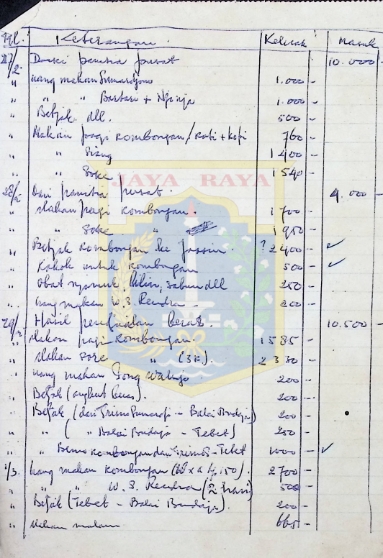 Tgl. Keterangan. Keluar Masuk
27/2 Dari panitia pusat 10.000 -
" uang makan Sumardjono 1.000 -
" " " Bastari + Njonja 1.000 -
" Betjak dll. 500 -
" Makan pagi rombongan / Roti + kopi 760 -
" " Siang 1400 -
" " Sore 1540 -
JAYA RAYA
28/2 Dari panitia pusat. 4.000 -
" Makan pagi rombongan. 1700 -
" " Sore " 1950 -
" rombongan ke 2400 -
" Rokok untuk rombongan 500 -
" Obat njamuk, sabun dll 250 -
" uang makan W.S. Rendra 200 -
29/2 Hasil 10.500 -
" Makan pagi rombongan. 1585 -
" Makan Sore " 2330 -
" uang makan 200 -
" Betjak 200 -
" Betjak (dari - Balai Budaja) 200 -
" " ( " Balai Budaja - Tebet) 250 -
" rombongan dari - Tebet 1000 -
1/3. Uang makan rombongan 2700 -
" " W.S. Rendra (2 hari) 500 -
" Betjak (Tebet - Balai Budaja). 200 -
" Makan malam 665 -